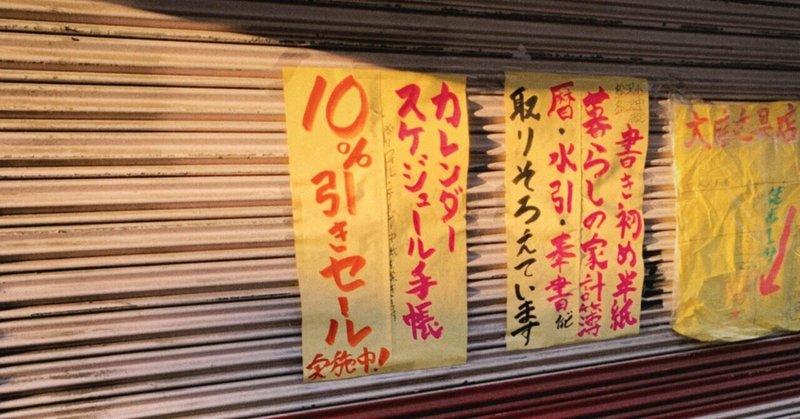 カレンダー
スケジュール手帳
10%引きセール
実施中!
書き初め半紙
暮らしの家計簿
暦・水引・奉書など
取りそろえています
文具店